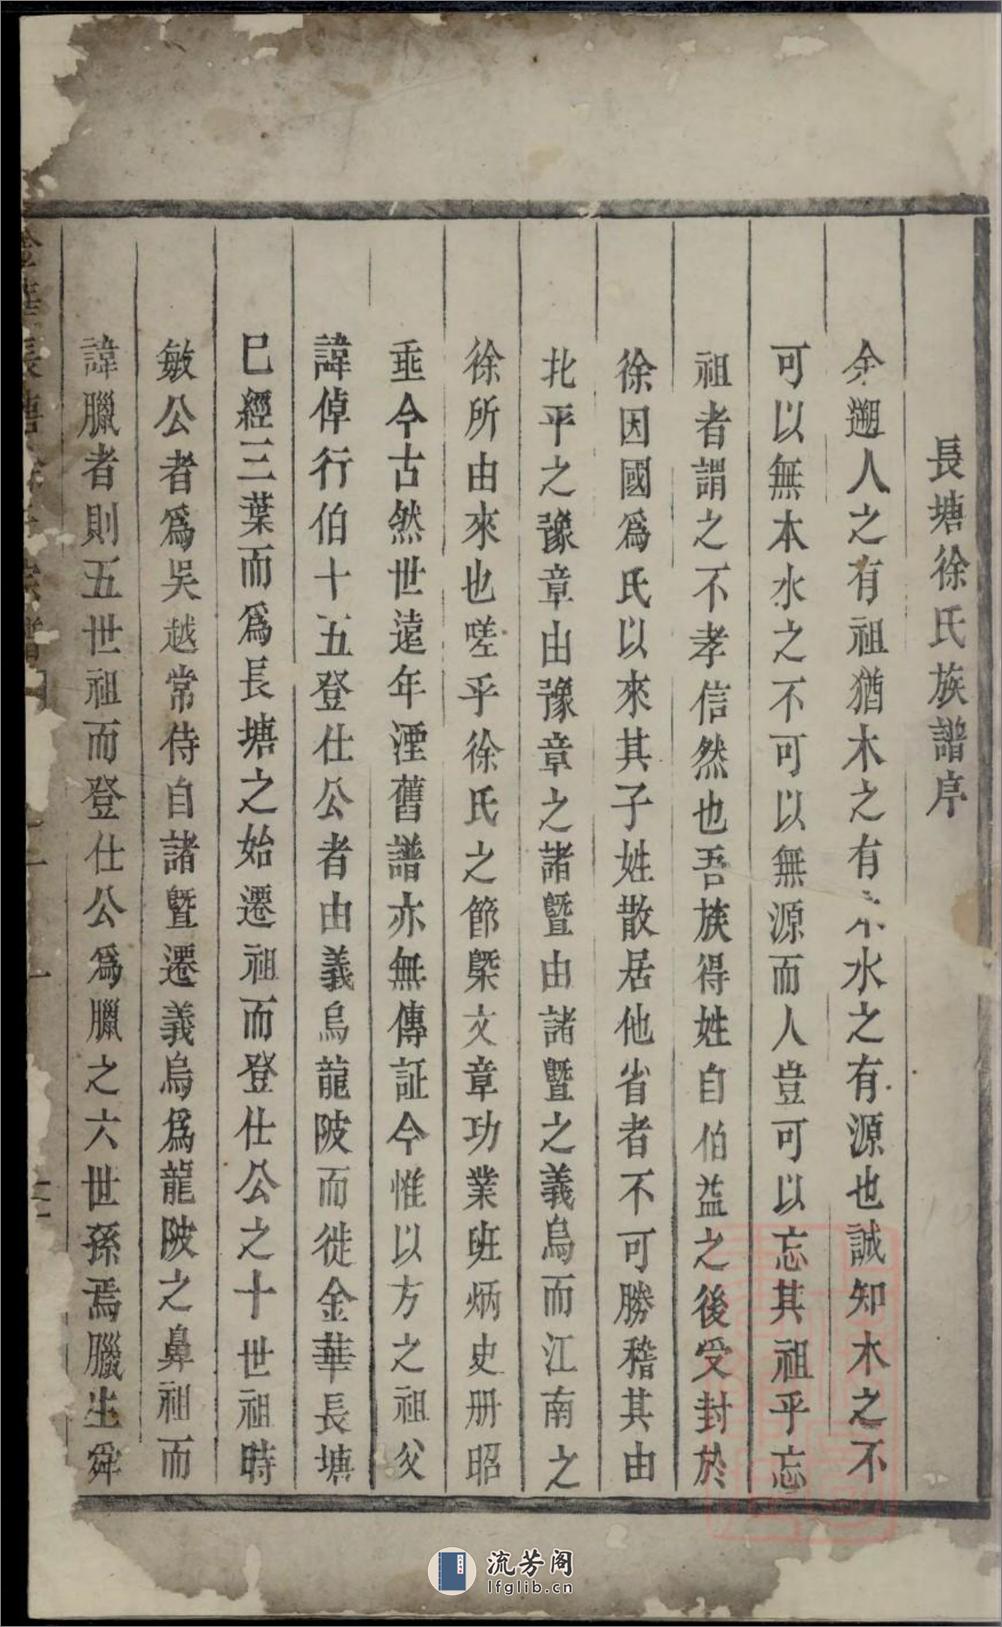 長塘徐氏族譜序
余遡人之有祖猶木之有本水之有源也誠知木之不
可以無本水之不可以無源而人豈可以忘其祖乎忘
祖者謂之不孝信然也吾族得姓自伯益之後受封於
徐因國爲氏以來其子姓散居他省者不可勝稽其由
北平之豫章由豫章之諸暨由諸暨之義烏而江南之
徐所由來也嗟乎徐氏之節槩文章功業班炳史册昭
垂今古然世遠年湮舊譜亦無傳証今惟以方之祖父
諱倬行伯十五登仕公者由義烏龍陂而徙金華長塘
巳經三葉而爲長塘之始遷祖而登仕公之十世祖時
敏公者爲吳越常侍自諸暨遷義烏爲龍陂之鼻祖而
諱臘者則五世祖而登仕公爲臘之六世孫焉臘生舜
流芳阁
lfglib.cn